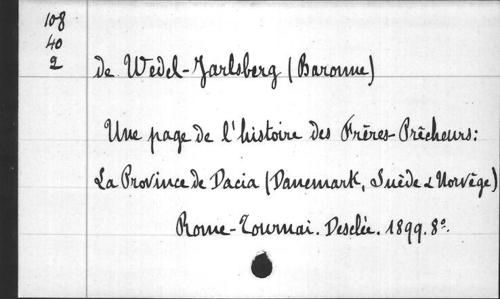 108
40
2
de Wedel-Jarlsberg (Baronne)
Une page de l'histoire des Frères-Prêcheurs:
La Province de Dacia (Danemark, Suède & Norvège)
Rome-Tournai. Desclée. 1899. 8°.